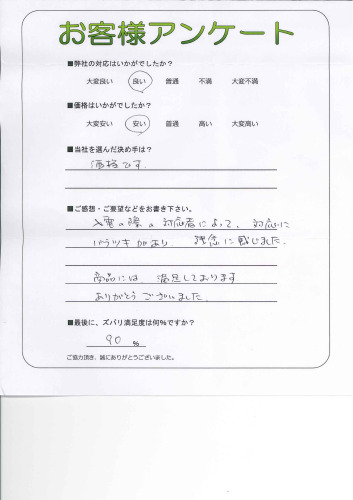 お客様アンケート
■弊社の対応はいかがでしたか？
大変良い 良い 普通 不満 大変不満
■価格はいかがでしたか？
大変安い 安い 普通 高い 大変高い
■当社を選んだ決め手は？
価格です.
■ご感想・ご要望などをお書き下さい。
入電の際の対応者によって、対応に
バラツキがあり、残念に感じました.
商品には満足しております
ありがとうございました.
■最後に、ズバリ満足度は何％ですか？
90 %
ご協力頂き、誠にありがとうございました。